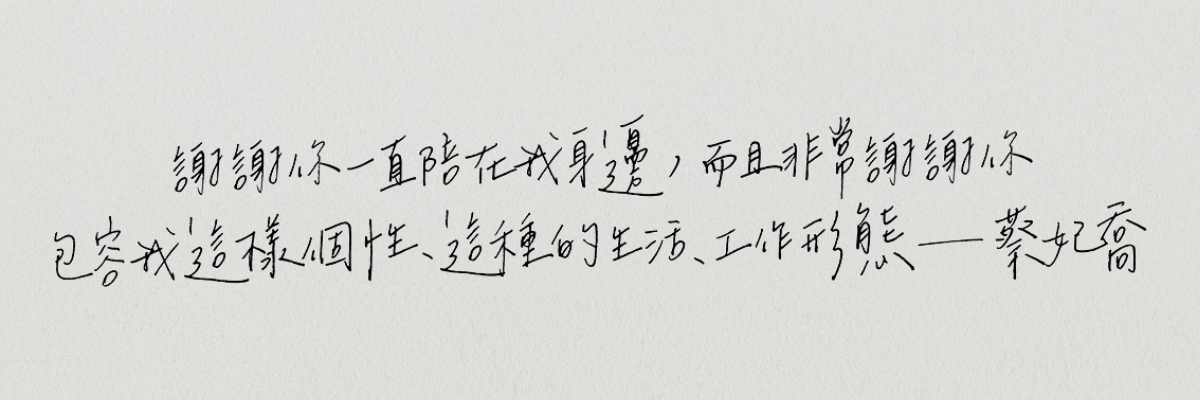 謝謝你一直陪在我身邊，而且非常謝謝你
包容我這樣個性、這種的生活、工作形態——蔡妃喬